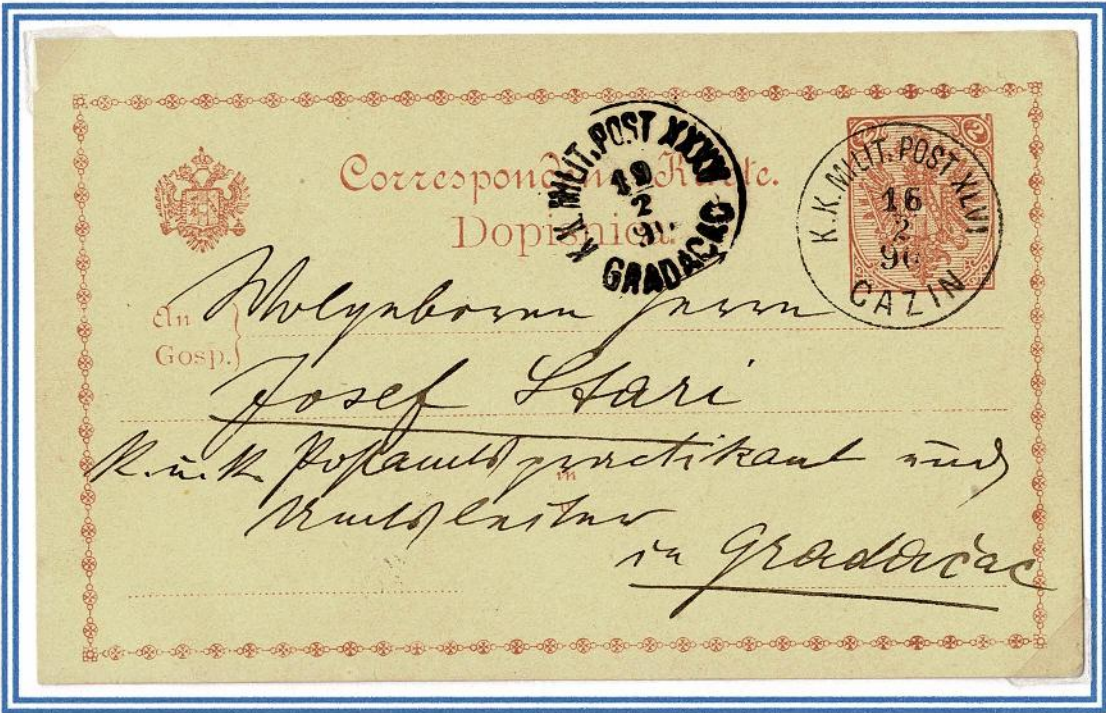 Correspondenz-Karte.
Dopisnica.
2
K.K. MILIT. POST XLVI
16
2
CAZIN
K.K. MILIT. POST
19
2
GRADAČAC
An
Gosp.
Wolgeboren Herrn
Josef Stari
K. u. K. Postamtspractikant und
in
Amtsleiter
in Gradačac